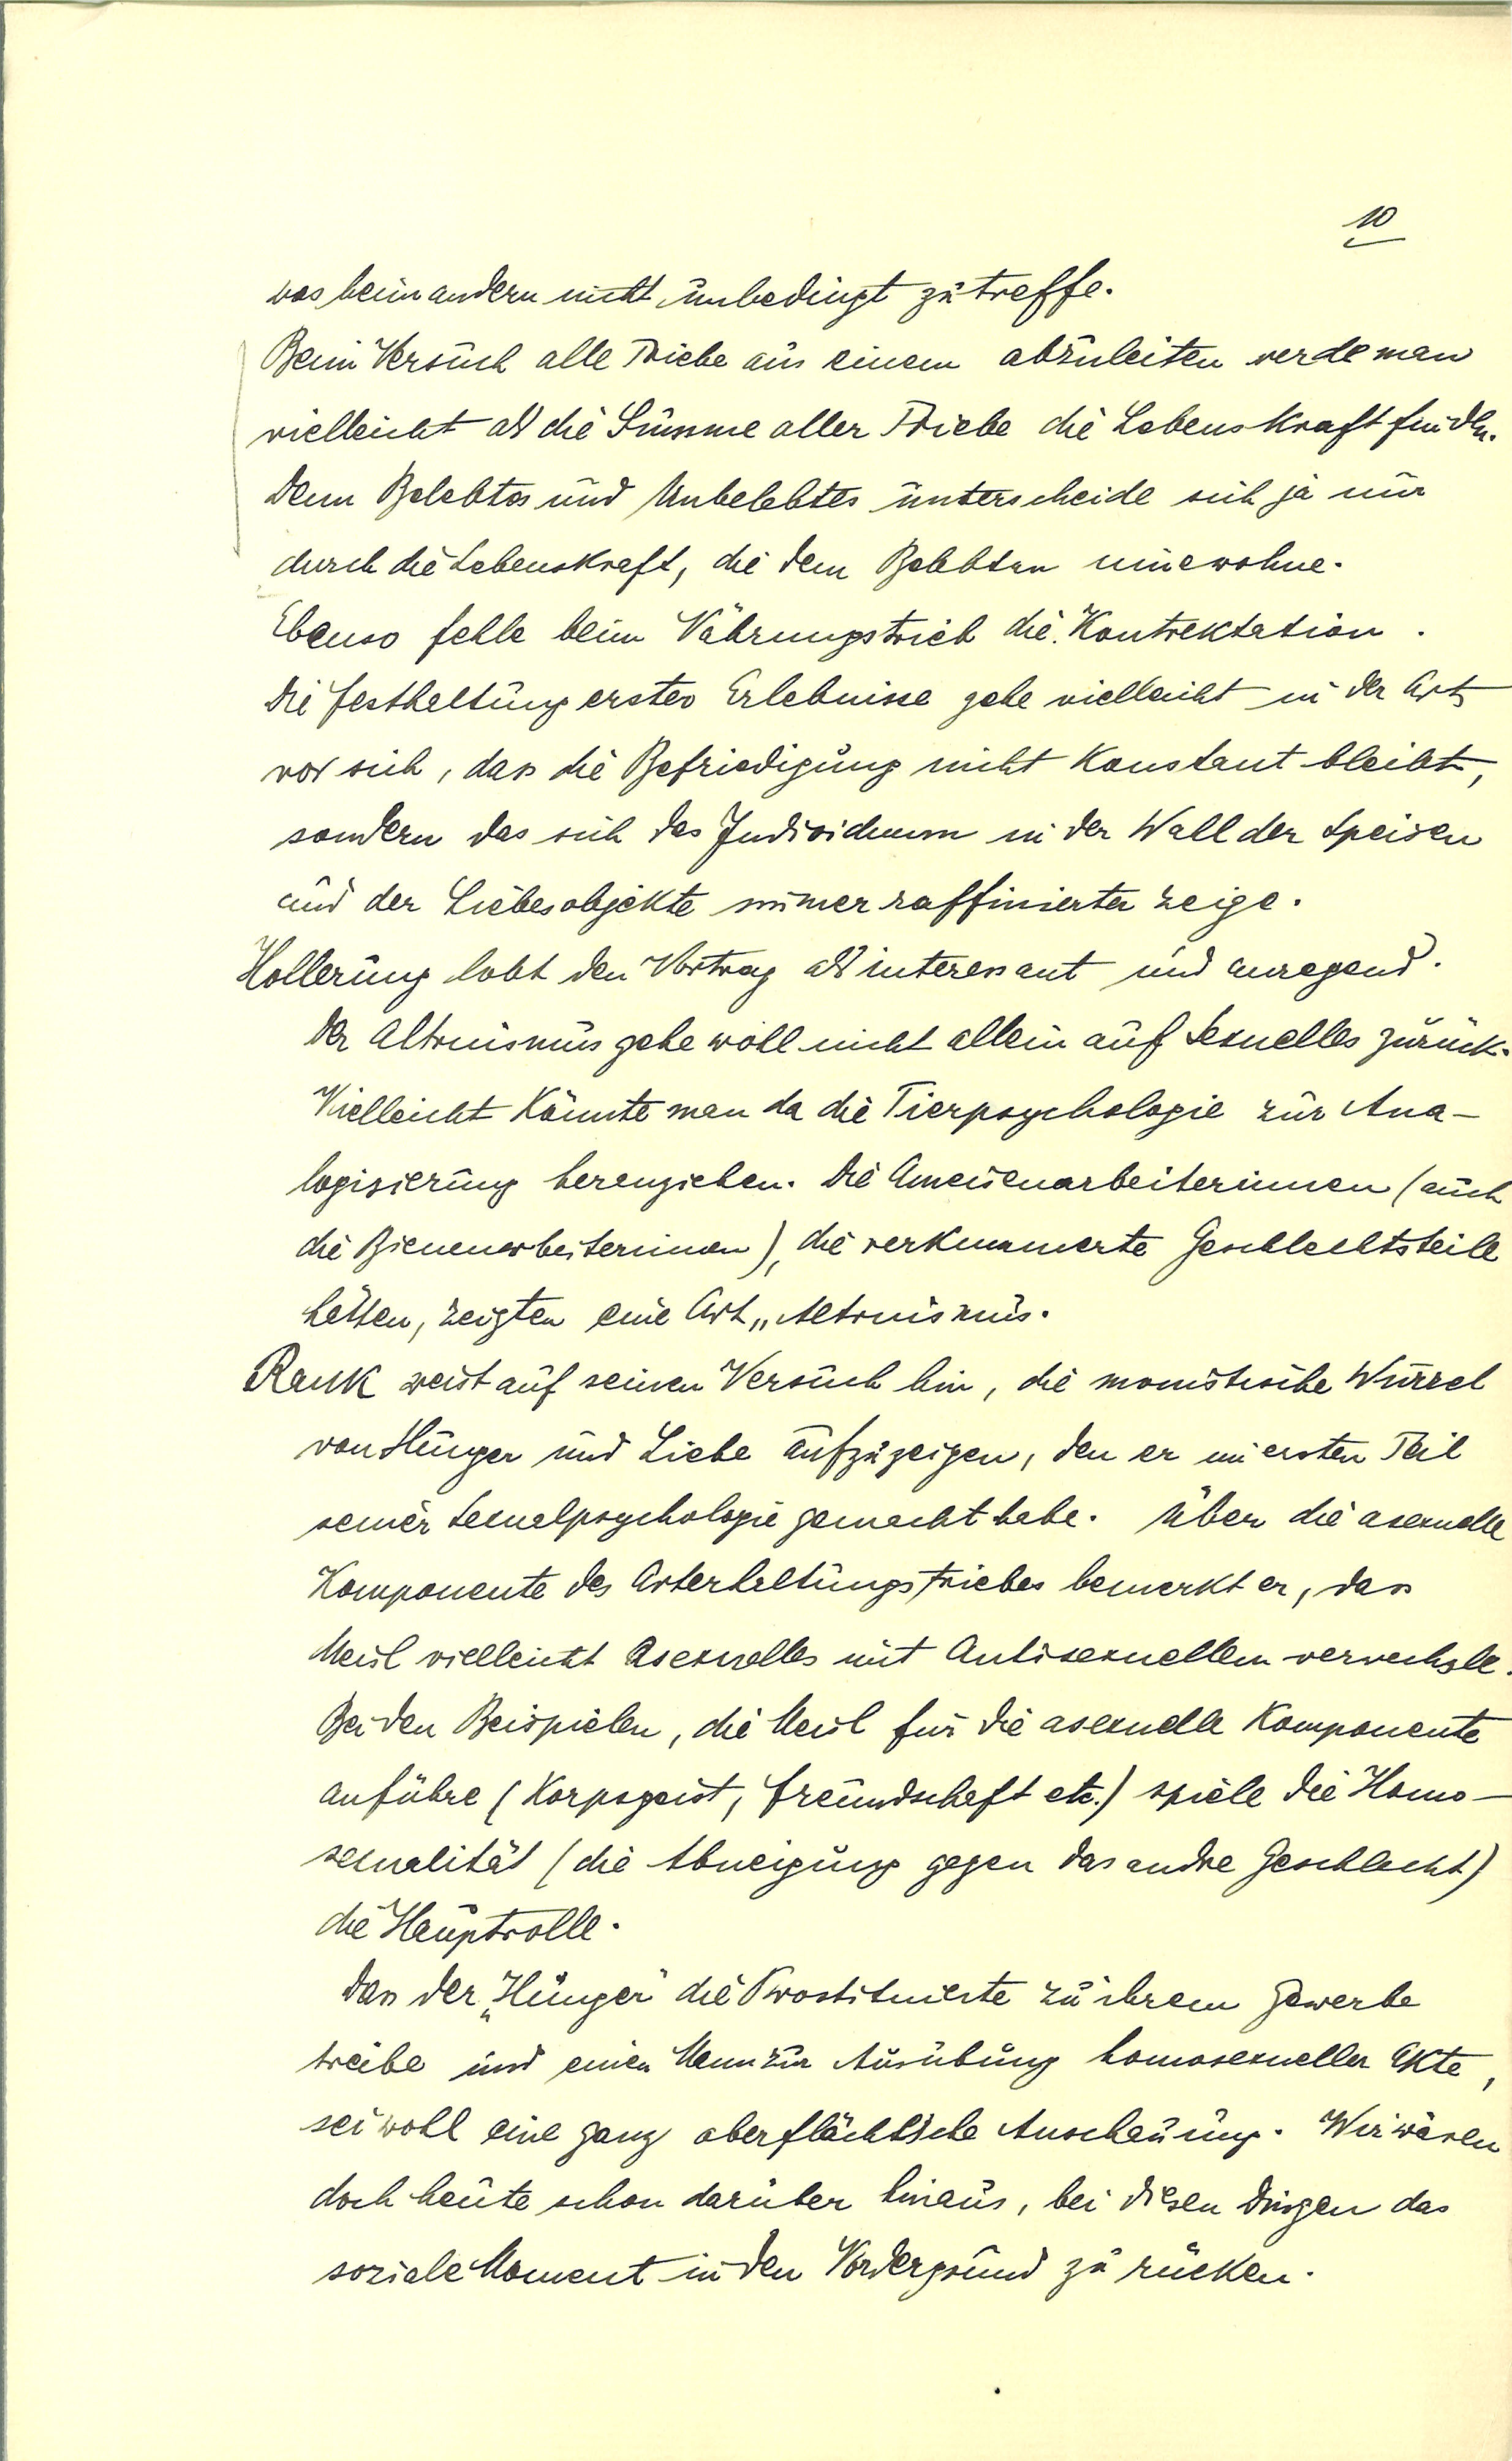 10
was beim andern nicht unbedingt zutreffe.
Beim Versuch alle Triebe aus einem abzuleiten werde man
vielleicht als die Summe aller Triebe die Lebenskraft finden.
Denn Belebtes und Unbelebtes unterscheide sich ja nur
durch die Lebenskraft, die dem Belebten innewohne.
Ebenso fehle beim Nährungstrieb die Kontrektation.
Die Festhaltung erster Erlebnisse gehe vielleicht in der Art
vor sich, dass die Befriedigung nicht konstant bleibt,
sondern das sich das Individuum in der Wall der Speisen
und der Liebesobjekte immer raffinierter zeige.
Hollerung lobt den Vortrag als interessant und anregend.
Der Altruismus gehe wohl nicht allein auf Sexuelles zurück.
Vielleicht könnte man da die Tierpsychologie zur Ana-
logisierung heranziehen. Die Ameisenarbeiterinnen (auch
die Bienenarbeiterinnen), die verkümmerte Geschlechtsteile
hätten, zeigten eine Art „Altruismus.
Rank weist auf seinen Versuch hin, die monistische Wurzel
von Hunger und Liebe aufzuzeigen, den er im ersten Teil
seiner Sexualpsychologie gemacht habe. Über die asexuelle
Komponente des Arterhaltungstriebes bemerkt er, dass
Meisl vielleicht Asexuelles mit Antisexuellem verwechsle.
Bei den Beispielen, die Meisl für die asexuelle Komponente
anführe (Korpsgeist, Freundschaft etc.) spiele die Homo-
sexualität (die Abneigung gegen das andre Geschlecht)
die Hauptrolle.
Dass der „Hunger" die Prostituierte zu ihrem Gewerbe
treibe und einen Mann zur Ausübung homosexueller Akte,
sei wohl eine ganz oberflächliche Anschauung. Wir wären
doch heute schon darüber hinaus, bei diesen Dingen das
soziale Moment in den Vordergrund zu rücken.